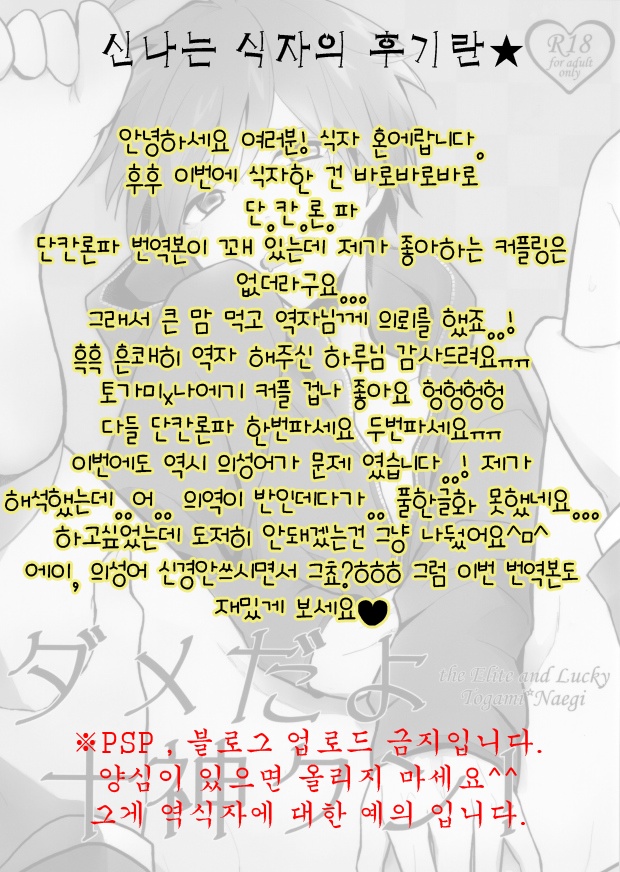 신나는 식자의 후기란★
R18
for adult
only
안녕하세요 여러분! 식자 혼에랍니다.
후후 이번에 식자한 건 바로바로바로
단.칸.론.파
단칸론파 번역본이 꽤 있는데 제가 좋아하는 커플링은
없더라구요...
그래서 큰 맘 먹고 역자님께 의뢰를 했죠..!
흑흑 흔쾌히 역자 해주신 하루님 감사드려요ㅠㅠ
토가미x나에기 커플 겁나 좋아요 헝헝헝헝
다들 단칸론파 한번파세요 두번파세요ㅠㅠ
이번에도 역시 의성어가 문제 였습니다..! 제가
해석했는데..어.. 의역이 반인데다가.. 풀한글화 못했네요...
하고싶었는데 도저히 안돼겠는건 그냥 나뒀어요^ㅁ^
에이, 의성어 신경안쓰시면서 그쵸?ㅎㅎㅎ 그럼 이번 번역본도
재밌게 보세요♥
ダメだよ
the Elite and Lucky
Togami*Naegi
※PSP , 블로그 업로드 금지입니다.
양심이 있으면 올리지 마세요^^
그게 역식자에 대한 예의 입니다.
十神クン!